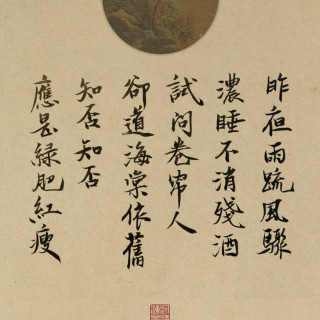 昨夜雨疏風驟
濃睡不消殘酒
試問卷帘人
卻道海棠依舊
知否知否
應是綠肥紅瘦